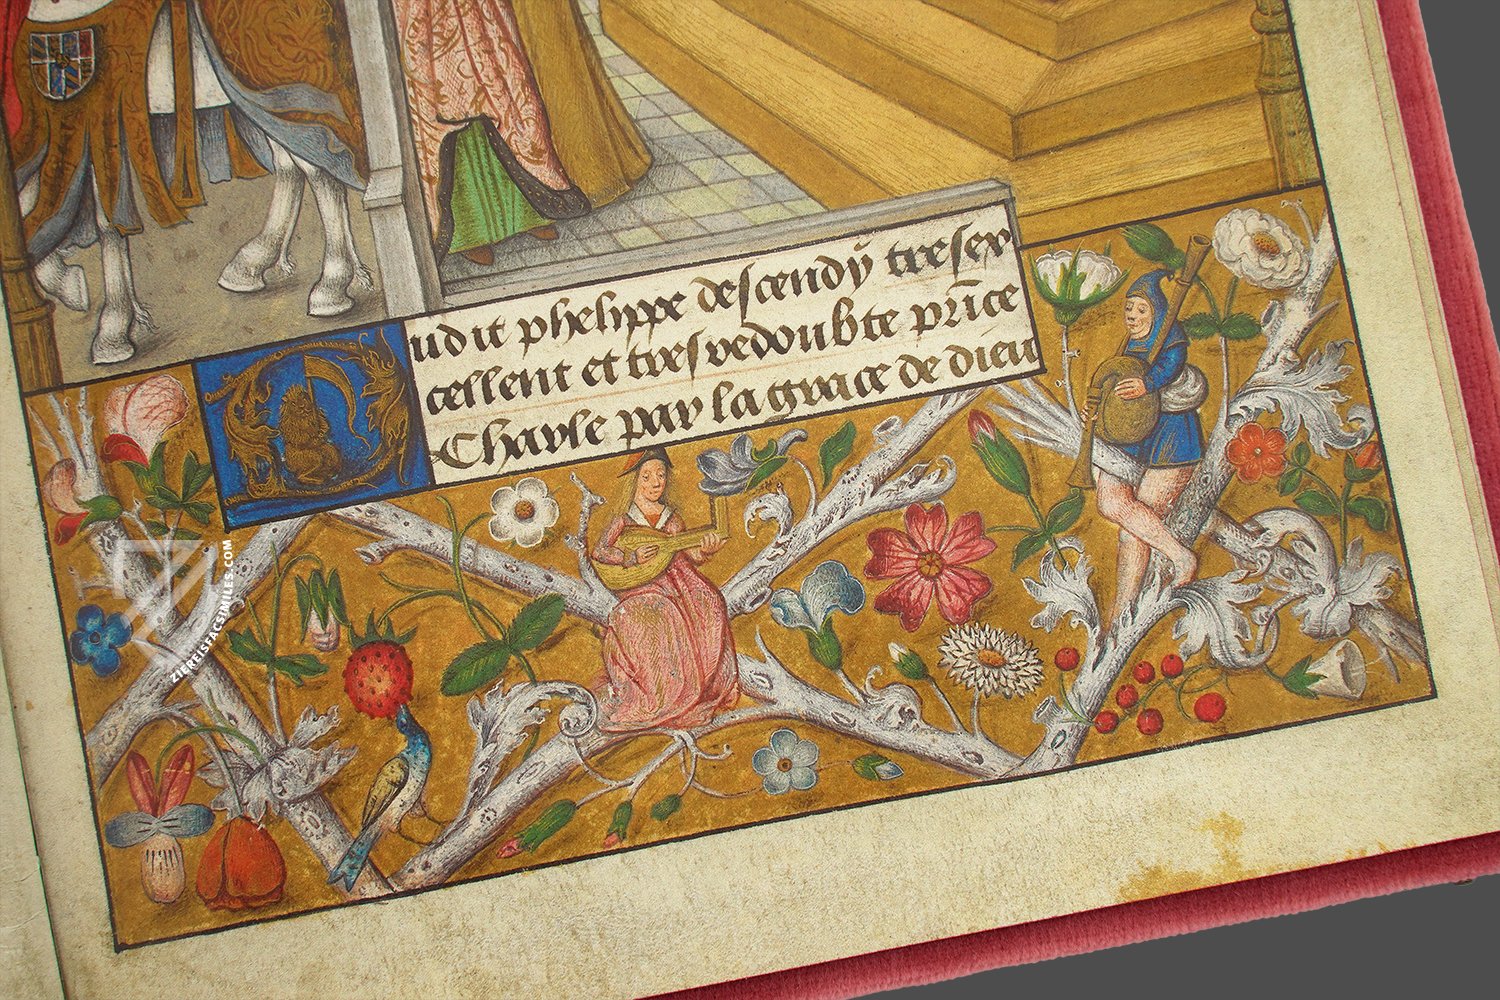 Dudit phelippe descendÿ tresex
cellent et tresredoubte prīce
Charle par la grace de dieu
ZIEREISFACSIMILES.COM